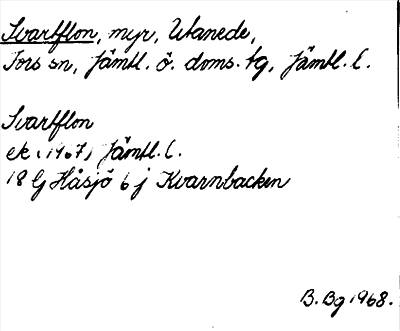 Svartflon, myr, Utanede,
Fors sn, Jämtl. ö. doms. tg, Jämtl. l.
Svartflon
ek (1967) Jämtl. l.
18 G Håsjö 6 j Kvarnbacken
B. Bg 1968.